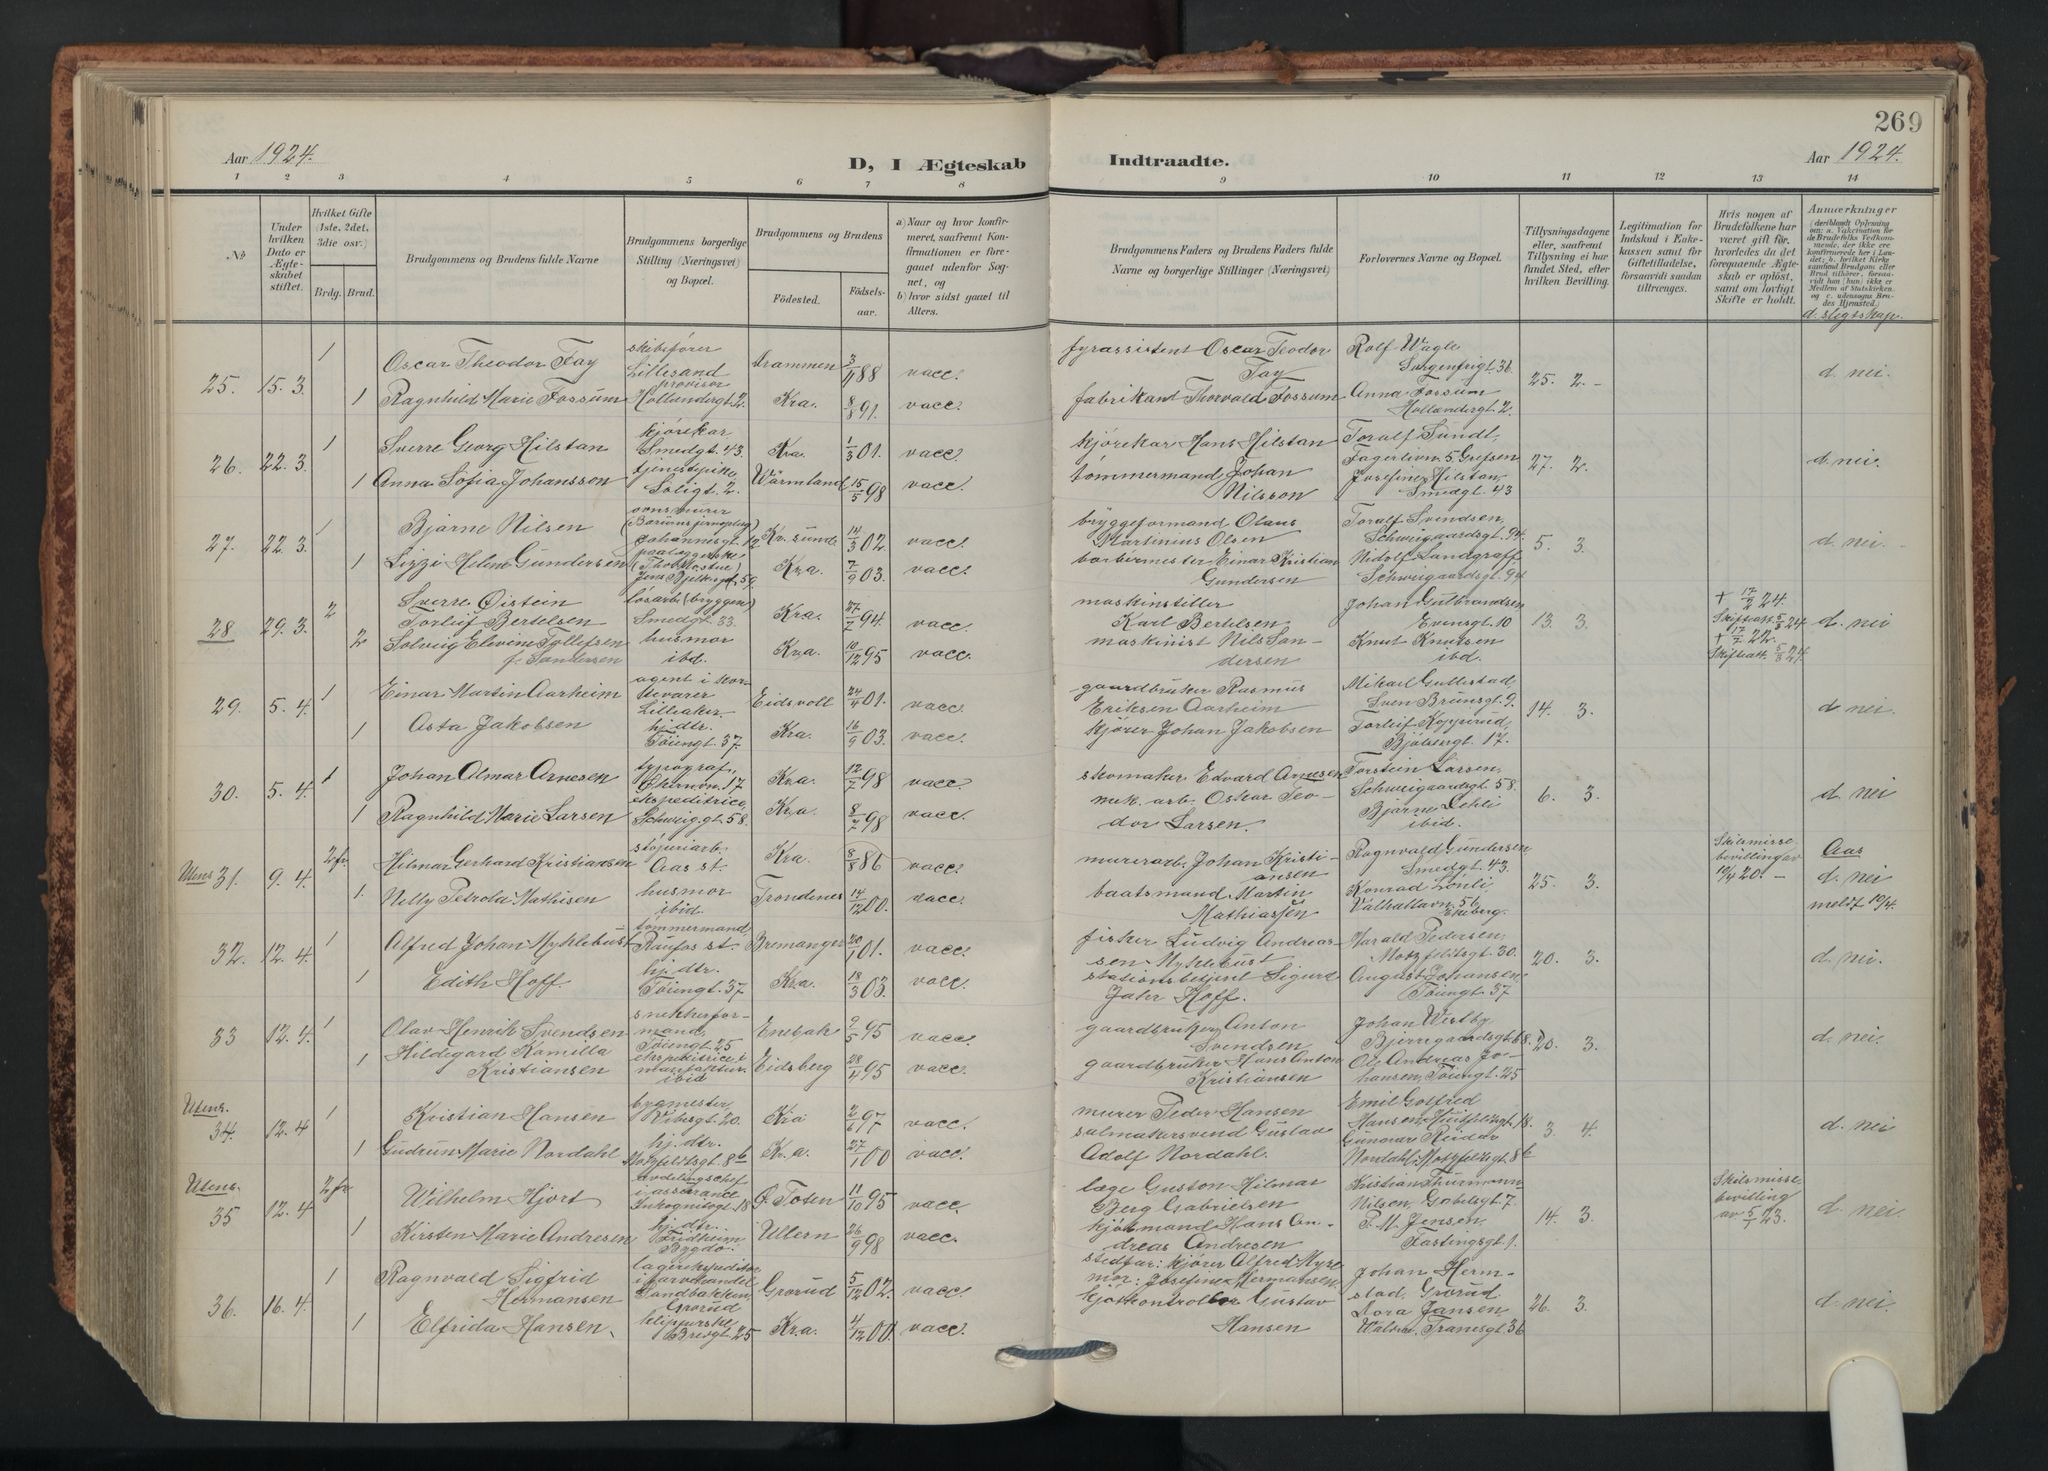 269
Aar 1924.
D, I Ægteskab
Indtraadte.
Aar 1924.
1 2 3 4 5 6 7 8 9 10 11 12 13 14
No
Under hvilken Dato er Ægteskabet stiftet.
Hvilket Gifte (1ste, 2det, 3die osv.)
Brdg. Brud.
Brudgommens og Brudens fulde Navne
Brudgommens borgerlige Stilling (Næringsvei) og Bopæl.
Brudgommens og Brudens
Fødested.
Fødselsaar.
a) Naar og hvor konfirmeret, saafremt Konfirmationen er foregaaet udenfor Sognet, og
b) hvor sidst gaaet til Alters.
Brudgommens Faders og Brudens Faders fulde Navne og borgerlige Stillinger (Næringsvei)
Forlovernes Navne og Bopæl.
Tillysningsdagene eller, saafremt Tillysning ei har fundet Sted, efter hvilken Bevilling.
Legitimation for Indskud i Enkekassen samt for Giftetilladelse, forsaavidt saadan tiltrænges.
Hvis nogen af Brudefolkene har været gift før, hvorledes da det foregaaende Ægteskab er opløst, samt om lovligt Skifte er holdt.
Anmærkninger
d. slegtskap.
25. 15. 3. 1 Oscar Theodor Fay skibsfører Lillesand Drammen 3/11 88 vacc. fyrassistent Oscar Teodor Fay Rolf Wagle Sorgenfrigt 36 25. 2. - d. nei.
1 Ragnhild Marie Fossum provisor Hollendergt. 2. Kra. 8/8 91. vacc. fabrikant Thorvald Fossum Anna Fossum Hollendergt. 2.
26. 22. 3. 1 Sverre Georg Hilstan kjørekar Smedgt. 43. Kra. 1/3 01. vacc. kjørekar Hans Hilstan Toralf Sundt, Fagerlivn. 5. Grefsen 27. 2. d. nei.
1 Anna Sofia Johansson tjenestepike Soligt. 2. Wärmland 15/5 98 vacc. tømmermand Johan Nilsson Josefine Hilstan, Smedgt. 43
27. 22. 3. 1 Bjarne Nilsen ovnsmurer Johannisgt. 12 Kr. sund 14/3 02. vacc. bryggeformand Olaus Martinius Olsen Toralf Svendsen, Schweigaardsgt. 94. 5. 3. d. nei.
1 Lizzi Helene Gundersen Jens Bjelkesgt. 59. Kra. 7/9 03. vacc. barbermester Einar Kristian Gundersen Nidolf Landgraff Schweigaardsgt. 94
28 29. 3. 2 Sverre Øistein Torleif Bertelsen løsarb. (bryggen) Smedgt. 33. Kra. 27/7 94. vacc. maskinstiller Karl Bertelsen Johan Gulbrandsen Evensgt. 10 13. 3. + 17/2 24. Skifteatt. 5/3 24 d. nei
2 Solveig Elevine Tollefsen f. Sandersen husmor ibd. Kra. 10/12 95 vacc. maskinist Nils Sandersen Knut Knudsen ibd. + 17/7 22. Skifteatt. 5/8 24.
29. 5. 4. 1 Einar Martin Aarheim agent i Lilleaker. Eidsvoll 24/4 01. vacc. gaardbruker Rasmus Eriksen Aarheim Mikael Gullestad, Sven Brunsgt. 9. 14. 3. d. nei.
1 Asta Jakobsen hj. dtr. Tøiengt. 37. Kra. 16/9 03. vacc. kjører Johan Jakobsen Torleif Kopperud, 17.
30. 5. 4. 1 Johan Almar Arnesen typograf, 17 Kra. 12/7 98 vacc. skomaker Edvard Arnesen Torstein Larsen, Schweigaardsgt 58. 6. 3. d. nei
1 Ragnhild Marie Larsen ekspeditrice, Schweiggt. 58. Kra. 8/7 98 vacc. mek. arb. Oskar Teodor Larsen. Bjarne Dehli ibid.
Utens 31. 9. 4. 2 fr. Hilmar Gerhard Kristiansen støperiarb. Aas st. Kra. 8/8 86 vacc. murerarb. Johan Kristiansen Ragnvald Gundersen Smedgt. 43. 25. 3. Skilsmissebevilling av 10/4 20. - Aas d. nei
1. Nelly Petrola Mathisen husmor ibid. Trondenes 14/12 00. vacc. baatsmand Martin Mathiassen Konrad Lonli, Valhallavn. 56 Ekeberg. meldt 10/4.
32. 12. 4. 1 Alfred Johan Myklebust tømmermand, Raufos st. Bremanger 20/1 01. vacc. fisker Ludvig Andreassen Myklebust Harald Pedersen, Motzfeldtsgt. 30. 20. 3. d. nei.
1 Edith Hoff hj. dtr. Tøiengt. 37 Kra. 18/3 03. vacc. stationsbetjent Sigurd Jahr Hoff. August Johansen, Tøiengt. 37
33 12. 4. 1 Olav Henrik Svendsen snekkerformand, Tøiengt. 25 Enebak 9/5 95 vacc. gaardbruker Anton Svendsen Johan Westby Bjerregaardsgt 68. 20. 3. d. nei.
1 Hildegard Kamilla Kristiansen ekspeditrice i manufaktur. ibid Eidsberg 28/4 95 vacc. gaardbruker Hans Anton Kristiansen Ole Andreas Johansen, Tøiengt. 25
Utens. 34. 12. 4 1 Kristian Hansen bymester Vibesgt. 20. Kra 2/6 97 vacc. murer Peder Hansen Emil Golfred Hansen, Huitfeldtsgt. 18. 3. 4. d. nei
1 Gudrun Marie Nordahl hj. dtr. Motzfeldtsgt. 8b Kra. 27/1 00 vacc. salmakersvend Gustav Adolf Nordahl. Gunnar Reidar Nordahl, Motzfeldtsgt 8b
Utens. 35 12. 4 2 fr. Wilhelm Hjort avdelingschef i assurance Inkognitogt. 18 Ø. Toten 11/10 95 vacc. læge Guston Hilmar Berg Gabrielsen Kristian Thurmann-Nilsen, Gabelsgt. 7. 14. 3. Skilsmissebevilling av 5/1 23. d. nei.
1 Kirsten Marie Andresen hj. dtr. Fridheim Bygdø. Ullern 26/9 98 vacc. kjøbmand Hans Andreas Andresen P. M. Jensen, Fastingsgt. 1.
36. 16. 4. 1 Ragnvald Sigfrid Hermansen lagerekspeditør i farvehandel Sandbakken, Grorud Grorud 5/12 02. vacc. stedfar: kjører Alfred mor: Josefine Hermansen Johan Hermstad, Grorud. 26. 3. d. nei.
1 Elfrida Hansen. klipperske Bredgt 25 Kra. 4/12 00 vacc. kjøtkontrollør Gustav Hansen Nora Jansen Tranesgt. 36